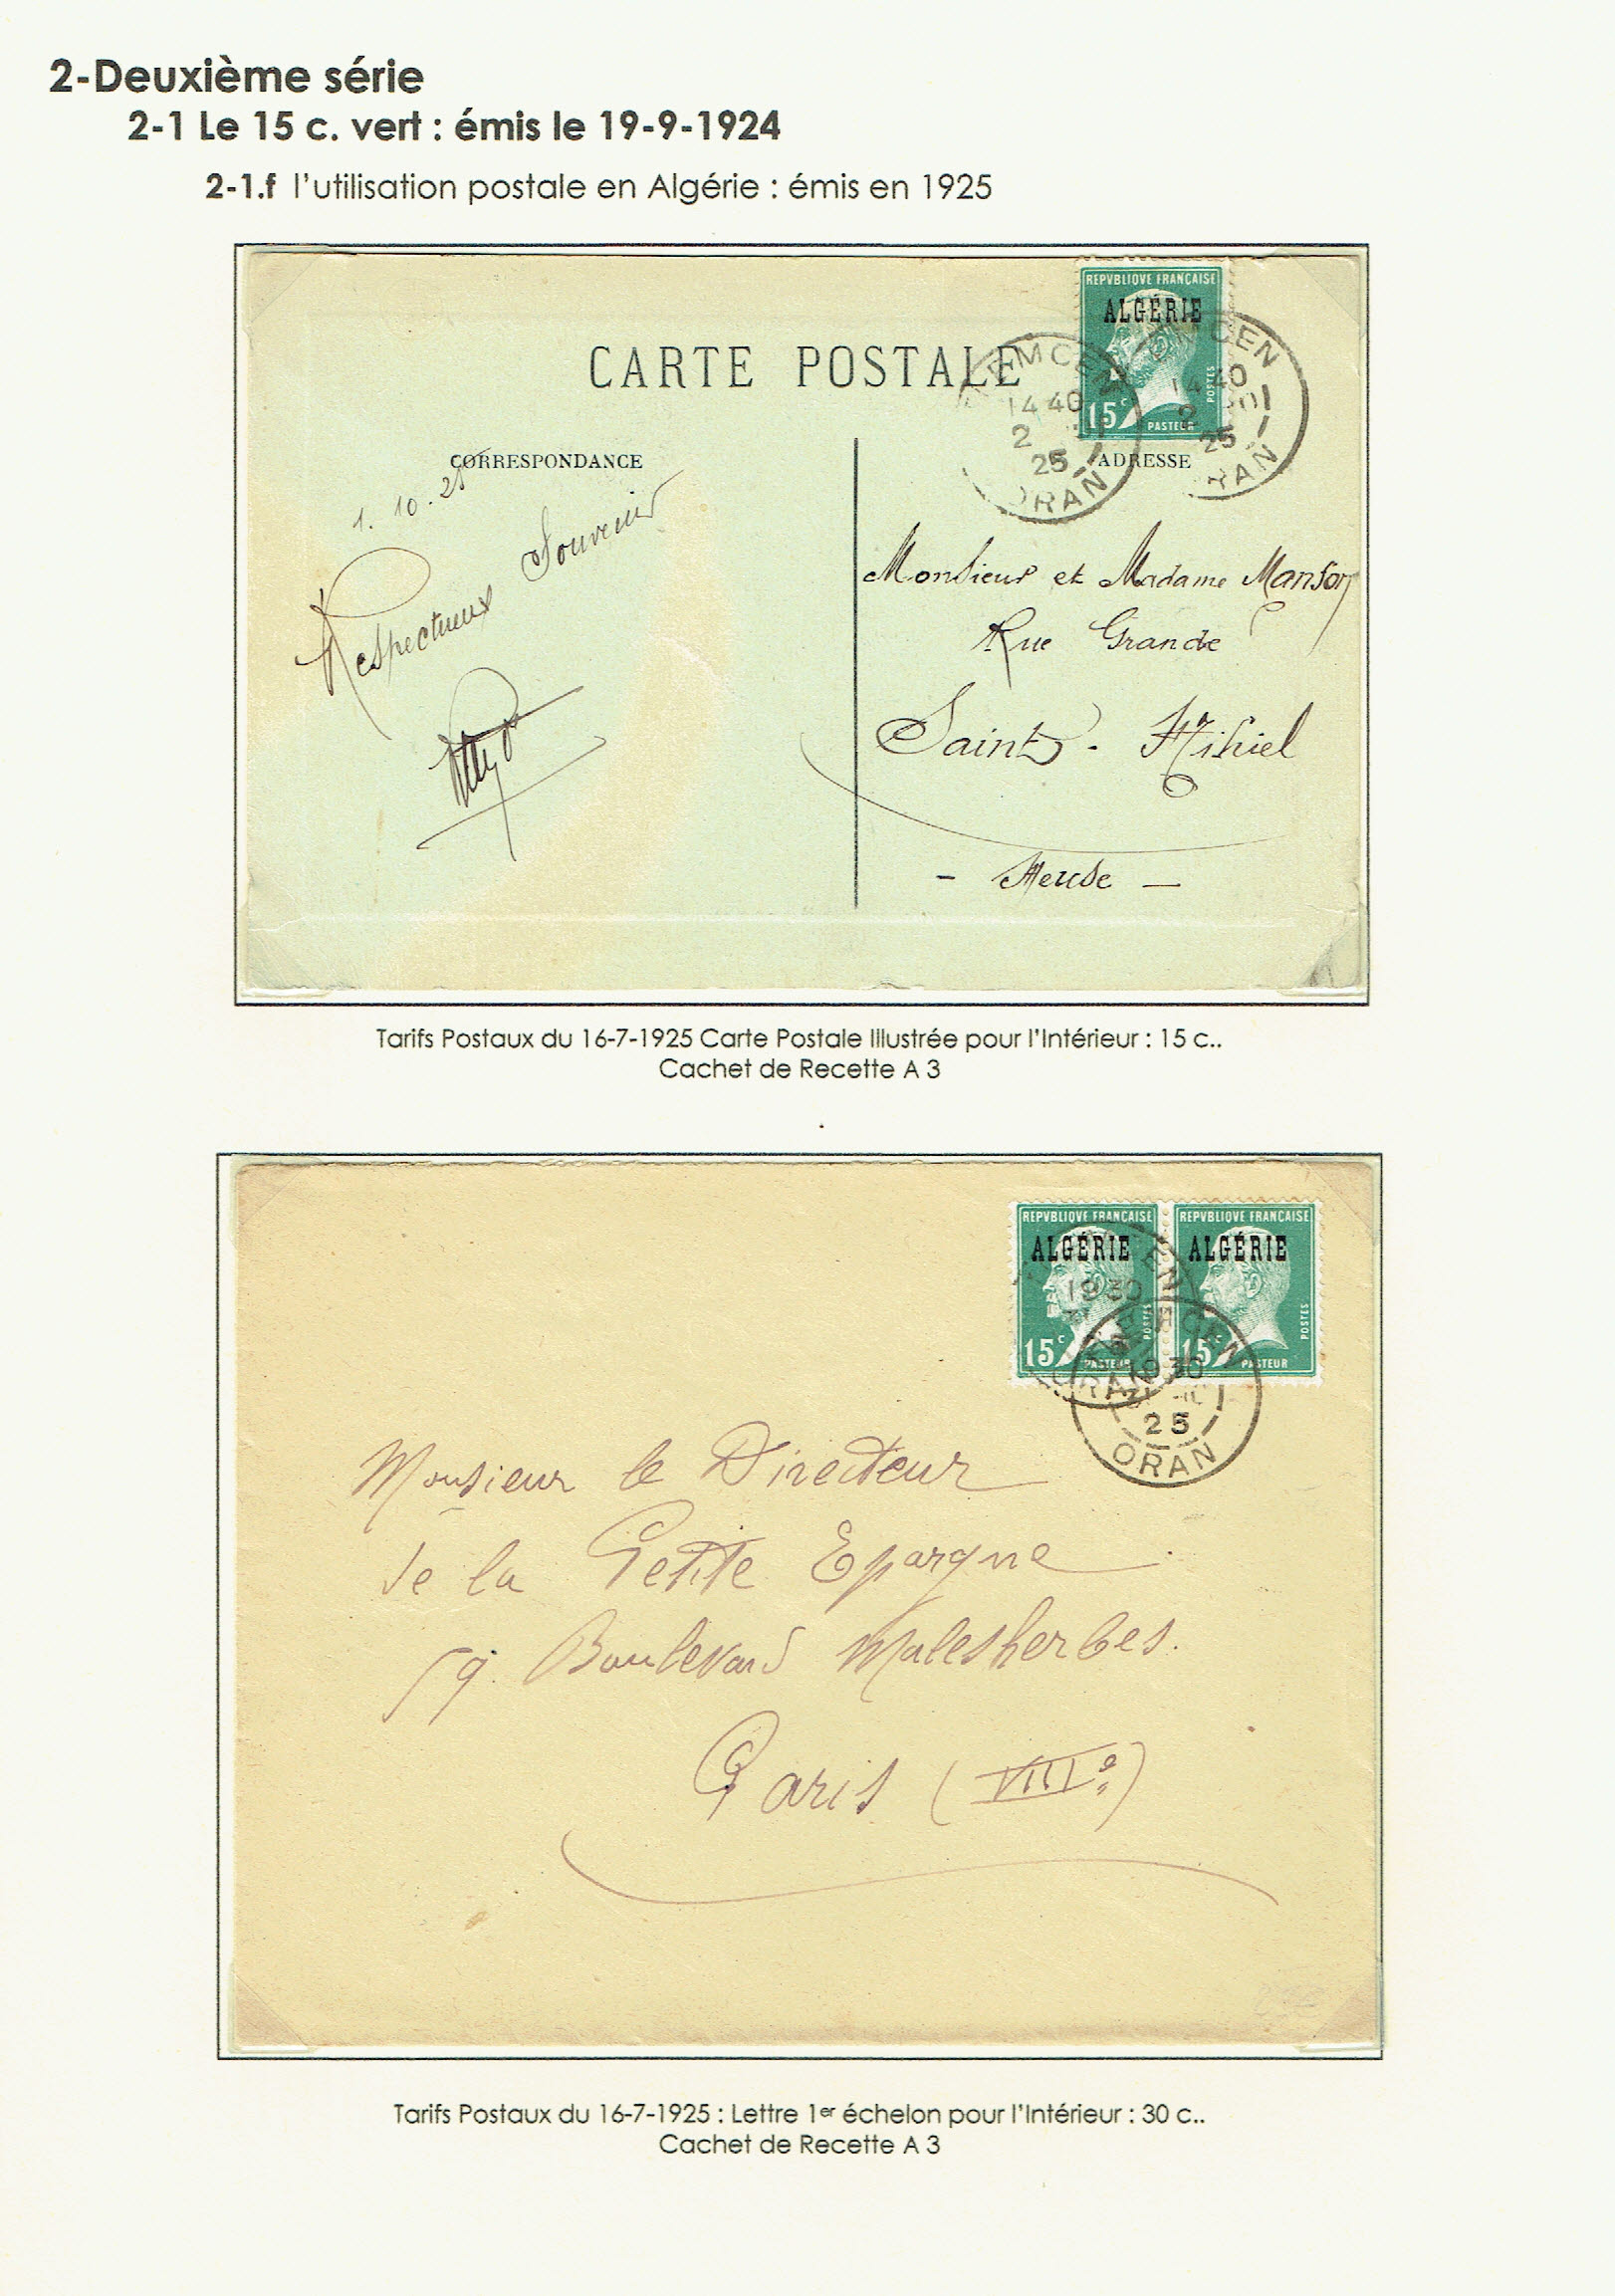 2-Deuxième série
2-1 Le 15 c. vert : émis le 19-9-1924
2-1.f l'utilisation postale en Algérie : émis en 1925
REPVBLIQVE FRANÇAISE
ALGÉRIE
15c
POSTES
PASTEUR
CARTE POSTALE
TLEMCEN
14 40
2
25
ORAN
MCEN
14 40
2
25
ORAN
CORRESPONDANCE
ADRESSE
1. 10. 25
Respectueux Souvenir
Monsieur et Madame Manson
Rue Grande
Saint - Mihiel
- Meuse -
Tarifs Postaux du 16-7-1925 Carte Postale Illustrée pour l'Intérieur : 15 c..
Cachet de Recette A 3
REPVBLIQVE FRANÇAISE REPVBLIQVE FRANÇAISE
ALGÉRIE ALGÉRIE
15c POSTES 15c POSTES
PASTEUR PASTEUR
1930
ORAN
1930
25
ORAN
Monsieur le Directeur
de la Petite Epargne
59. Boulevard Malesherbes.
Paris (VIIIe)
Tarifs Postaux du 16-7-1925 : Lettre 1er échelon pour l'Intérieur : 30 c..
Cachet de Recette A 3